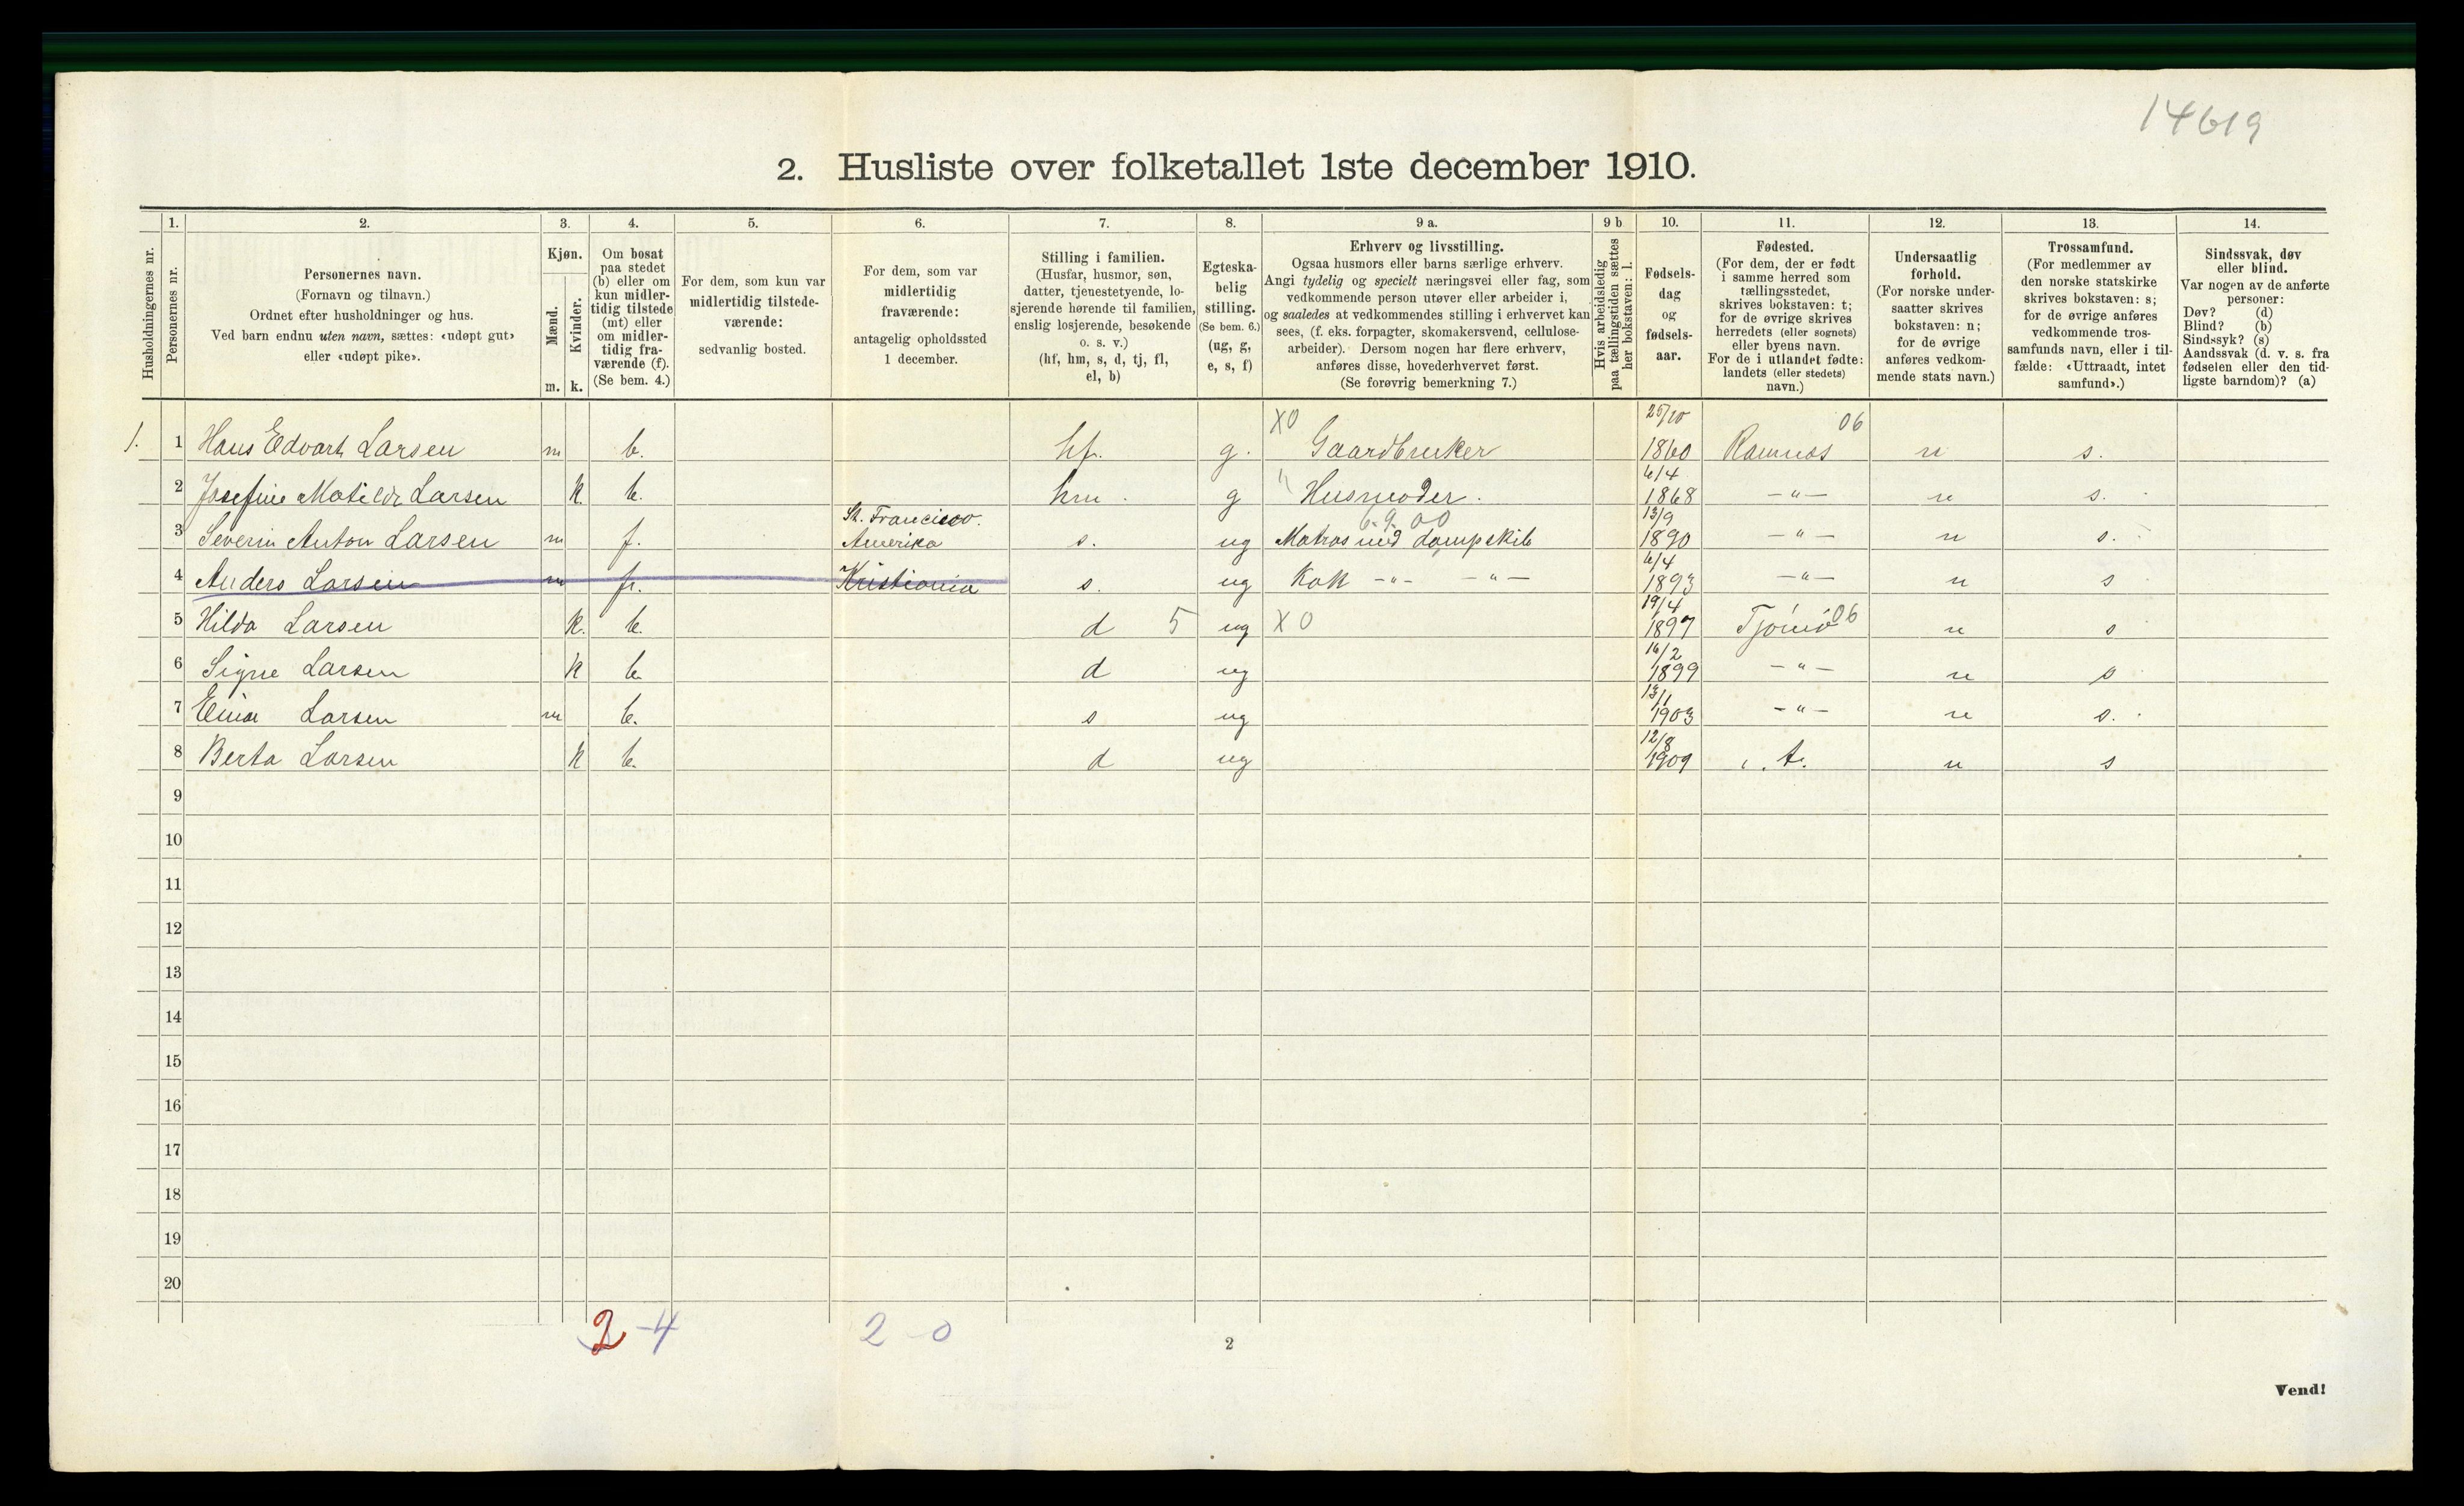 14619
2. Husliste over folketallet 1ste december 1910.
Husholdningernes nr.
1.
Personernes nr.
2.
Personernes navn.
(Fornavn og tilnavn.)
Ordnet efter husholdninger og hus.
Ved barn endnu uten navn, sættes: «udøpt gut»
eller «udøpt pike».
3.
Kjøn.
Mænd.
m.
Kvinder.
k.
4.
Om bosat
paa stedet
(b) eller om
kun midler-
tidig tilstede
(mt) eller
om midler-
tidig fra-
værende (f).
(Se bem. 4.)
5.
For dem, som kun var
midlertidig tilstede-
værende:
sedvanlig bosted.
6.
For dem, som var
midlertidig
fraværende:
antagelig opholdssted
1 december.
7.
Stilling i familien.
(Husfar, husmor, søn,
datter, tjenestetyende, lo-
sjerende hørende til familien,
enslig losjerende, besøkende
o. s. v.)
(hf, hm, s, d, tj, fl,
el, b)
8.
Egteska-
belig
stilling.
(Se bem. 6.)
(ug, g,
e, s, f)
9 a.
Erhverv og livsstilling.
Ogsaa husmors eller barns særlige erhverv.
Angi tydelig og specielt næringsvei eller fag, som
vedkommende person utøver eller arbeider i,
og saaledes at vedkommendes stilling i erhvervet kan
sees, (f. eks. forpagter, skomakersvend, cellulose-
arbeider). Dersom nogen har flere erhverv,
anføres disse, hovederhvervet først.
(Se forøvrig bemerkning 7.)
9 b
Hvis arbeidsledig
paa tællingstiden sættes
her bokstaven: l.
10.
Fødsels-
dag
og
fødsels-
aar.
11.
Fødested.
(For dem, der er født
i samme herred som
tællingsstedet,
skrives bokstaven: t;
for de øvrige skrives
herredets (eller sognets)
eller byens navn.
For de i utlandet fødte:
landets (eller stedets)
navn.)
12.
Undersaatlig
forhold.
(For norske under-
saatter skrives
bokstaven: n;
for de øvrige
anføres vedkom-
mende stats navn.)
13.
Trossamfund.
(For medlemmer av
den norske statskirke
skrives bokstaven: s;
for de øvrige anføres
vedkommende tros-
samfunds navn, eller i til-
fælde: «Uttraadt, intet
samfund».)
14.
Sindssvak, døv
eller blind.
Var nogen av de anførte
personer:
Døv? (d)
Blind? (b)
Sindssyk? (s)
Aandssvak (d. v. s. fra
fødselen eller den tid-
ligste barndom)? (a)
1. 1 Hans Edvart Larsen m b. hf. g. X0 Gaardbruker 25/10 1860 Ramnes 06 n s.
2 Josefine Matilde Larsen k b. hm. g " Husmoder. 6/4 1868 -"- n s.
3 Severin Anton Larsen m f. St. Francisco. Amerika s. ug Matros med dampskib 6.9.00 13/9 1890 -"- n s.
4 Anders Larsen m fr. Kristiania s. ug Kok -"- -"- 6/4 1893 -"- n s
5 Hilda Larsen k. b. d 5 ug X0 19/4 1897 Tjömö 06 n s
6 Signe Larsen k b. d ug 16/2 1899 -"- n s
7 Einar Larsen m b. s ug 13/1 1903 -"- n s.
8 Berta Larsen k b. d ug 12/8 1909 t. n s
9
10
11
12
13
14
15
16
17
18
19
20
2-4 2-0
2
Vend!